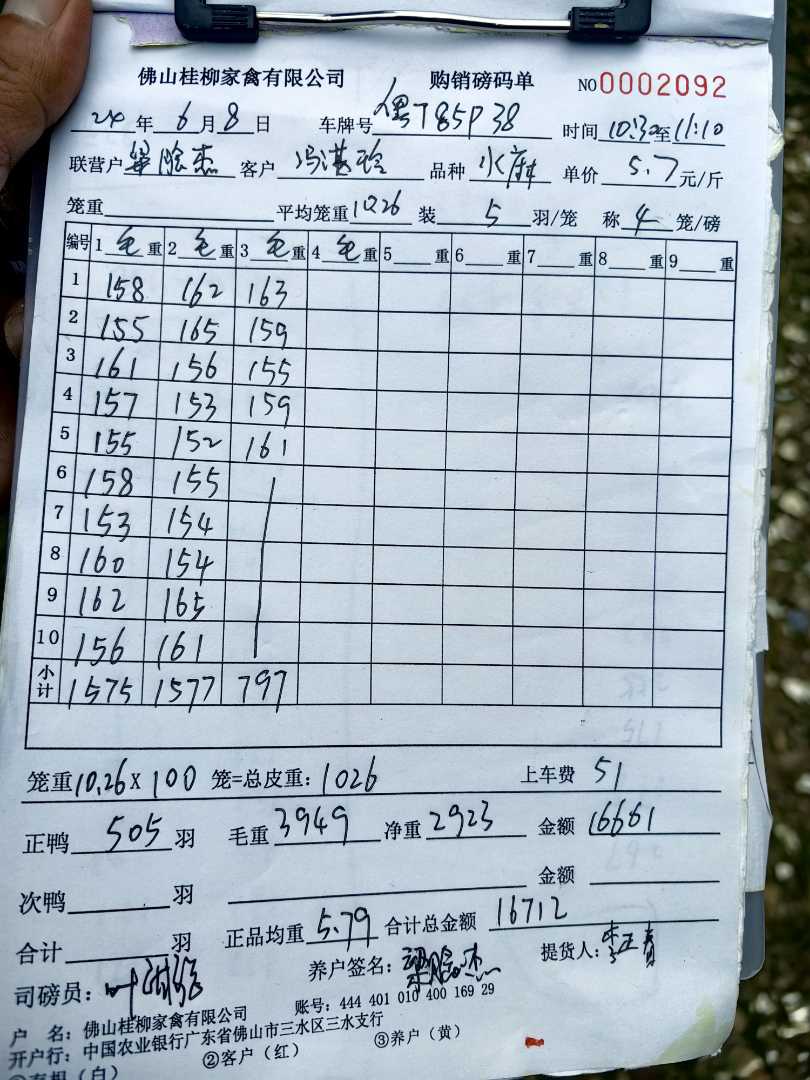 佛山桂柳家禽有限公司 购销磅码单 NO0002092
24年6月8日 车牌号 T85P38 时间10:30至11:10
联营户 杰 客户 冯湛玲 品种 水麻 单价 5.7元/斤
笼重 平均笼重10.26 装 5 羽/笼 称 4 笼/磅
编号 1 毛 重 2 毛 重 3 毛 重 4 毛 重 5 重 6 重 7 重 8 重 9 重
1 158 162 163
2 155 165 159
3 161 156 155
4 157 153 159
5 155 152 161
6 158 155
7 153 154
8 160 154
9 162 165
10 156 161
小计 1575 1577 797
笼重10.26×100 笼=总皮重：1026 上车费 51
正鸭 505 羽 毛重 3949 净重 2923 金额 16661
次鸭 羽 金额
合计 羽 正品均重 5.79 合计总金额 16712
司磅员：叶 养户签名： 杰 提货人：李正青
户 名：佛山桂柳家禽有限公司 账号：444 401 010 400 169 29
开户行：中国农业银行广东省佛山市三水区三水支行
（白） ②客户（红） ③养户（黄）